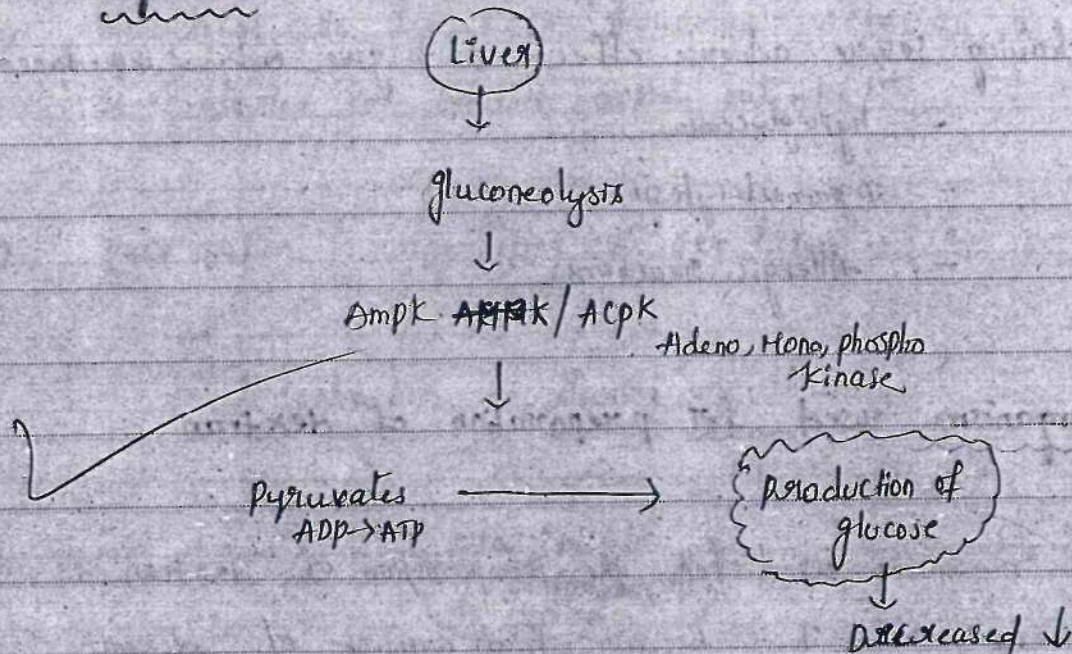 Liver
↓
gluconeolysis
↓
Ampk / ACpk
Adeno, Mono, phospho
Kinase
↓
Pyruvates → production of
ADP→ATP
glucose
↓
Decreased ↓